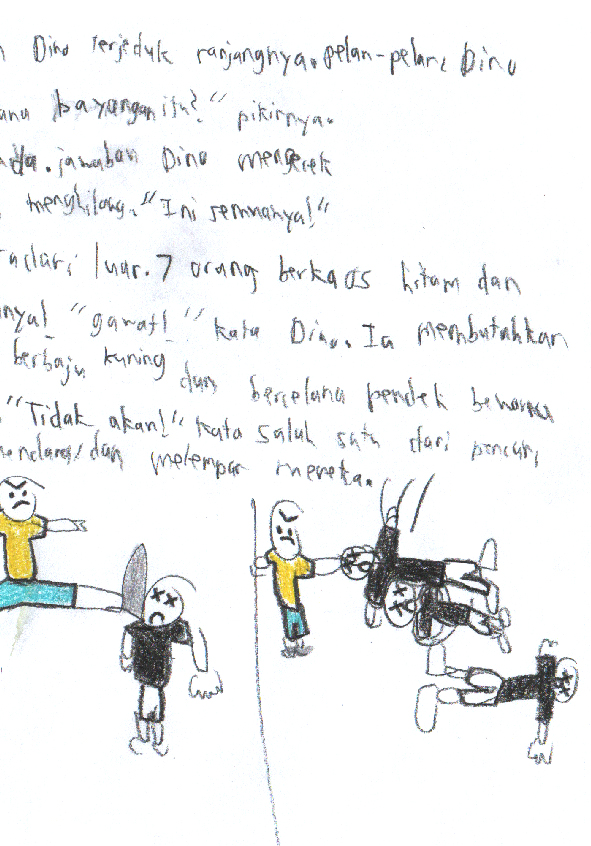 Dino terjeduk ranjangnya. pelan-pelan Dino
bayangan itu?" pikirnya.
ada. jawaban Dino mengecek
menghilang. "Ini semuanya!"
dari luar. 7 orang berkaos hitam dan
nya! "gawat!" kata Dino. Ia membutuhkan
berbaju kuning dan bercelana pendek
"Tidak akan!" kata salah satu dari pencuri
dan melempar mereka.